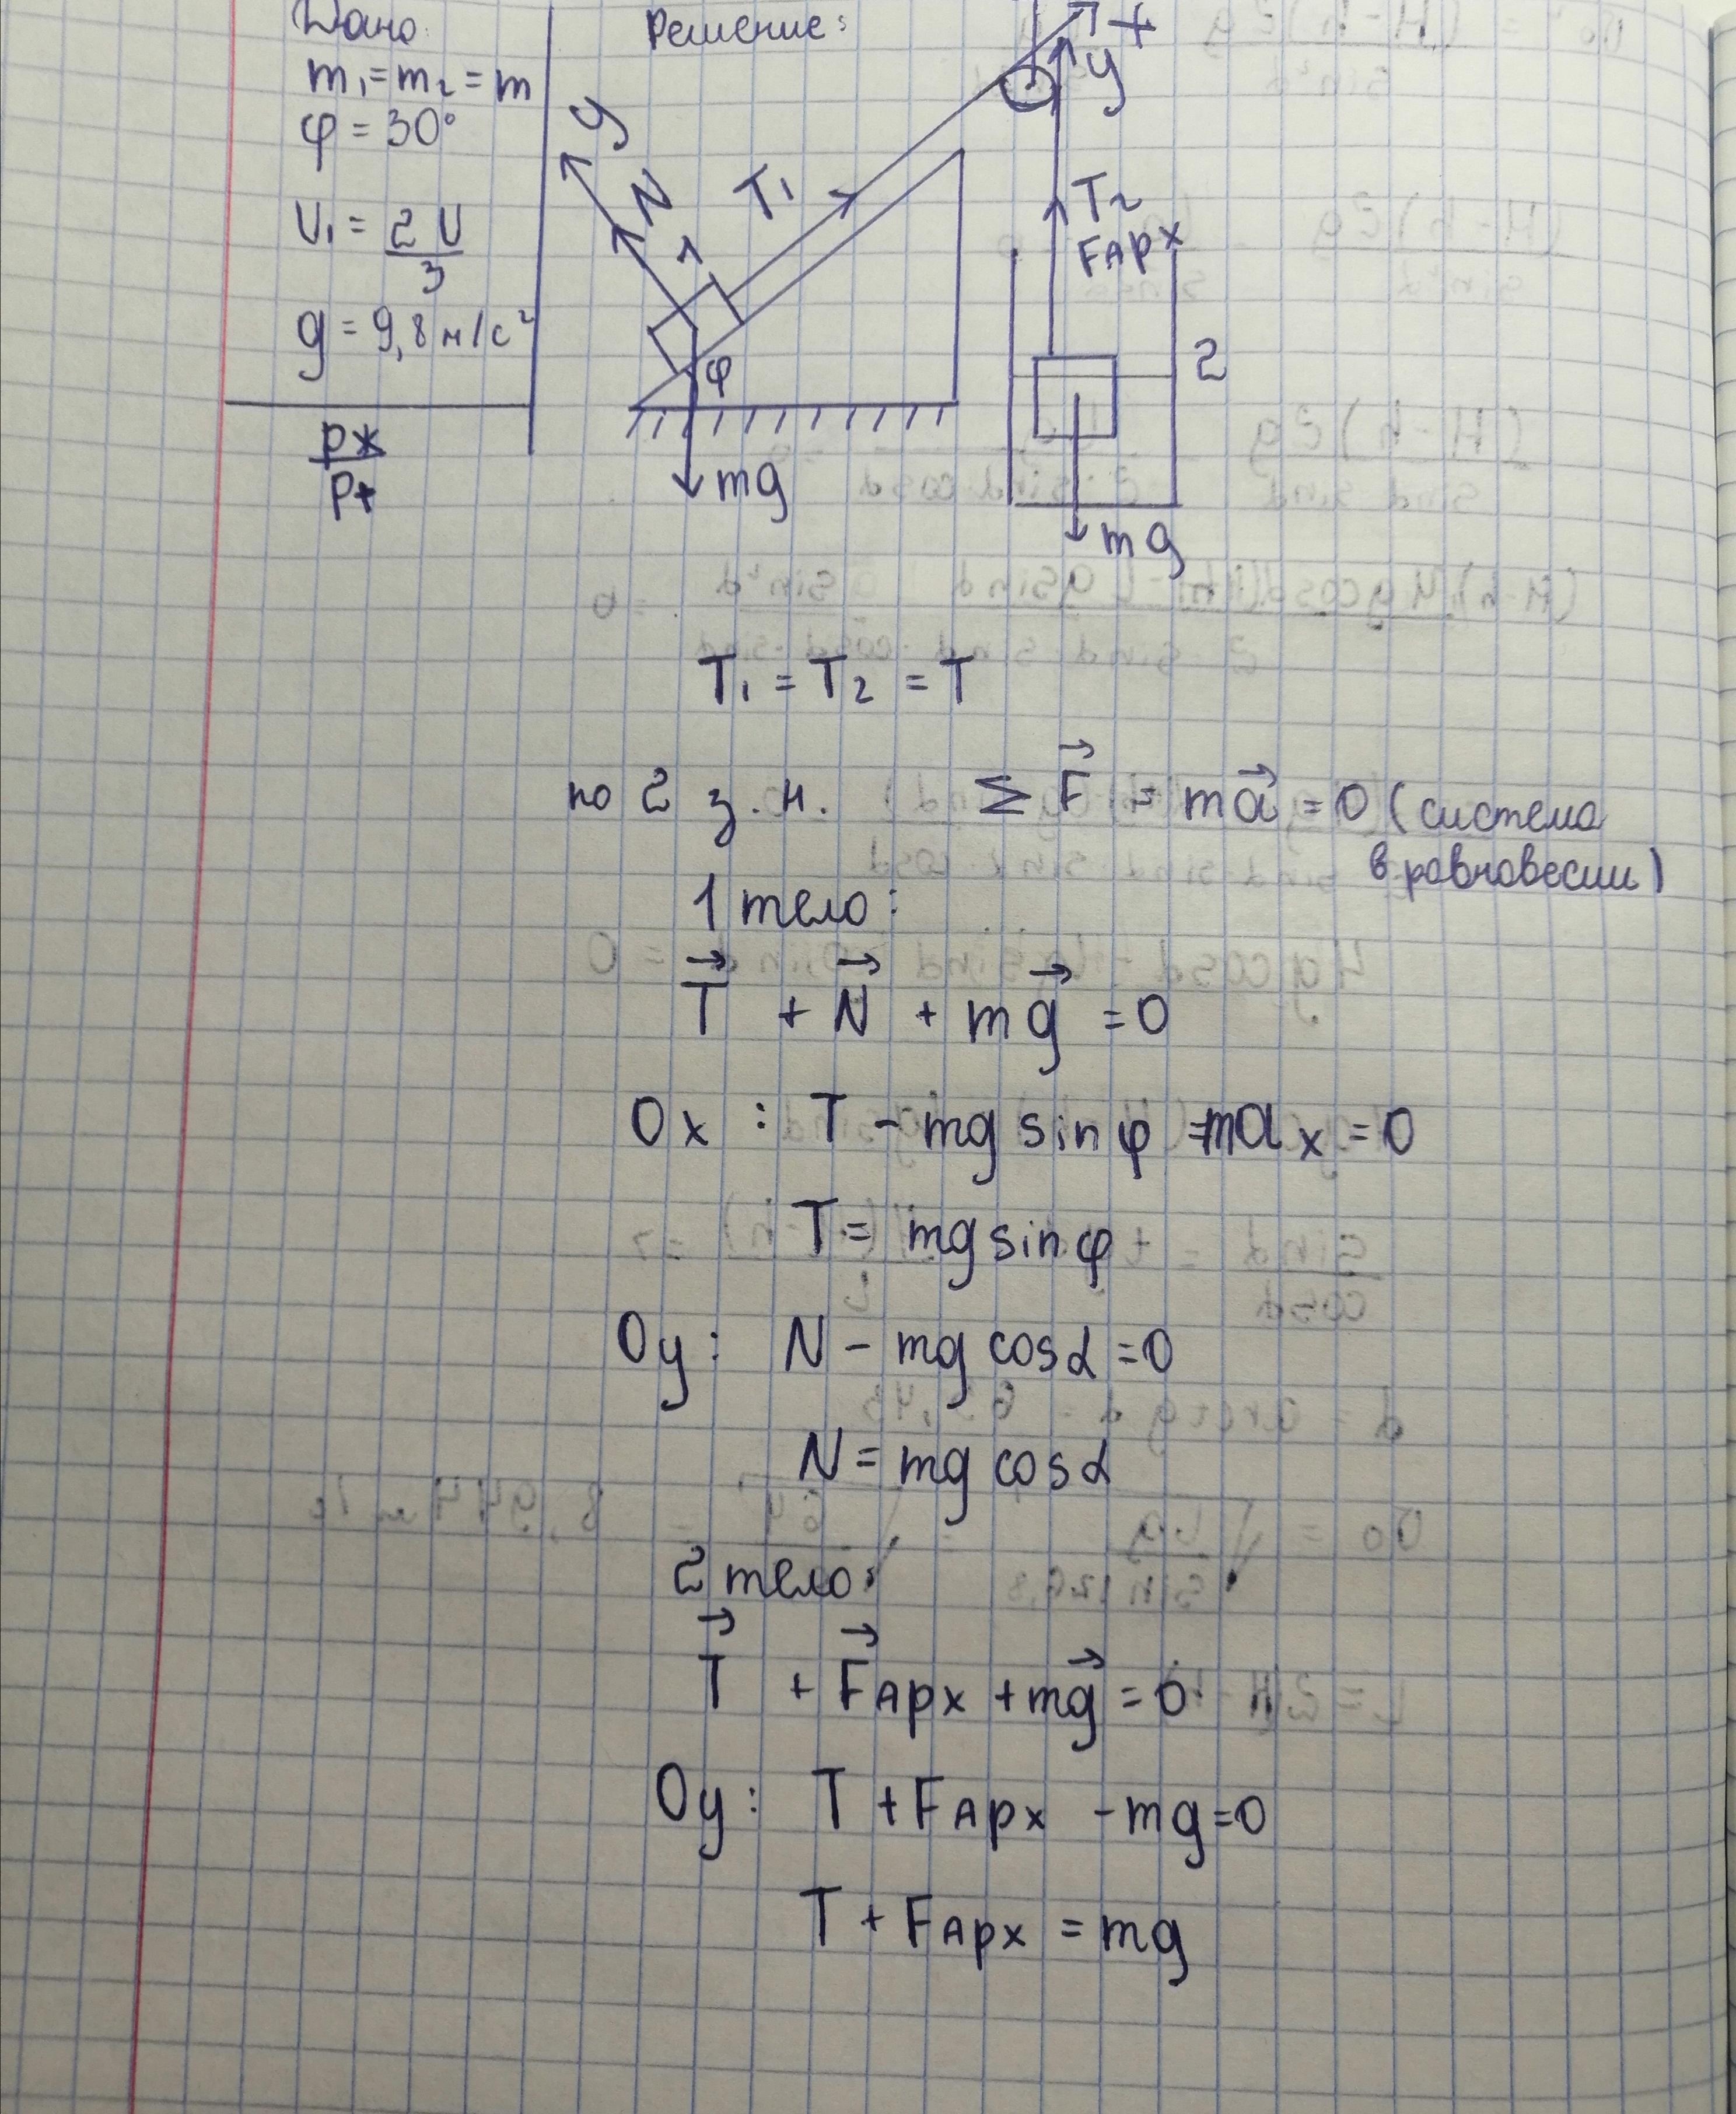 Дано:
m₁ = m₂ = m
φ = 30°
V₁ = 2V/3
g = 9,8 м/с²
ρж/ρт
Решение:
x
y
y
N
T₁
1
φ
mg
T₂
Fарх
2
mg
T₁ = T₂ = T
по 2 з. н. Σ F⃗ = ma⃗ = 0 (система
в равновесии)
1 тело:
T⃗ + N⃗ + mg⃗ = 0
Ox : T - mg sin φ = maₓ = 0
T = mg sin φ
Oy : N - mg cos α = 0
N = mg cos α
2 тело:
T⃗ + F⃗арх + mg⃗ = 0
Oy : T + Fарх - mg = 0
T + Fарх = mg